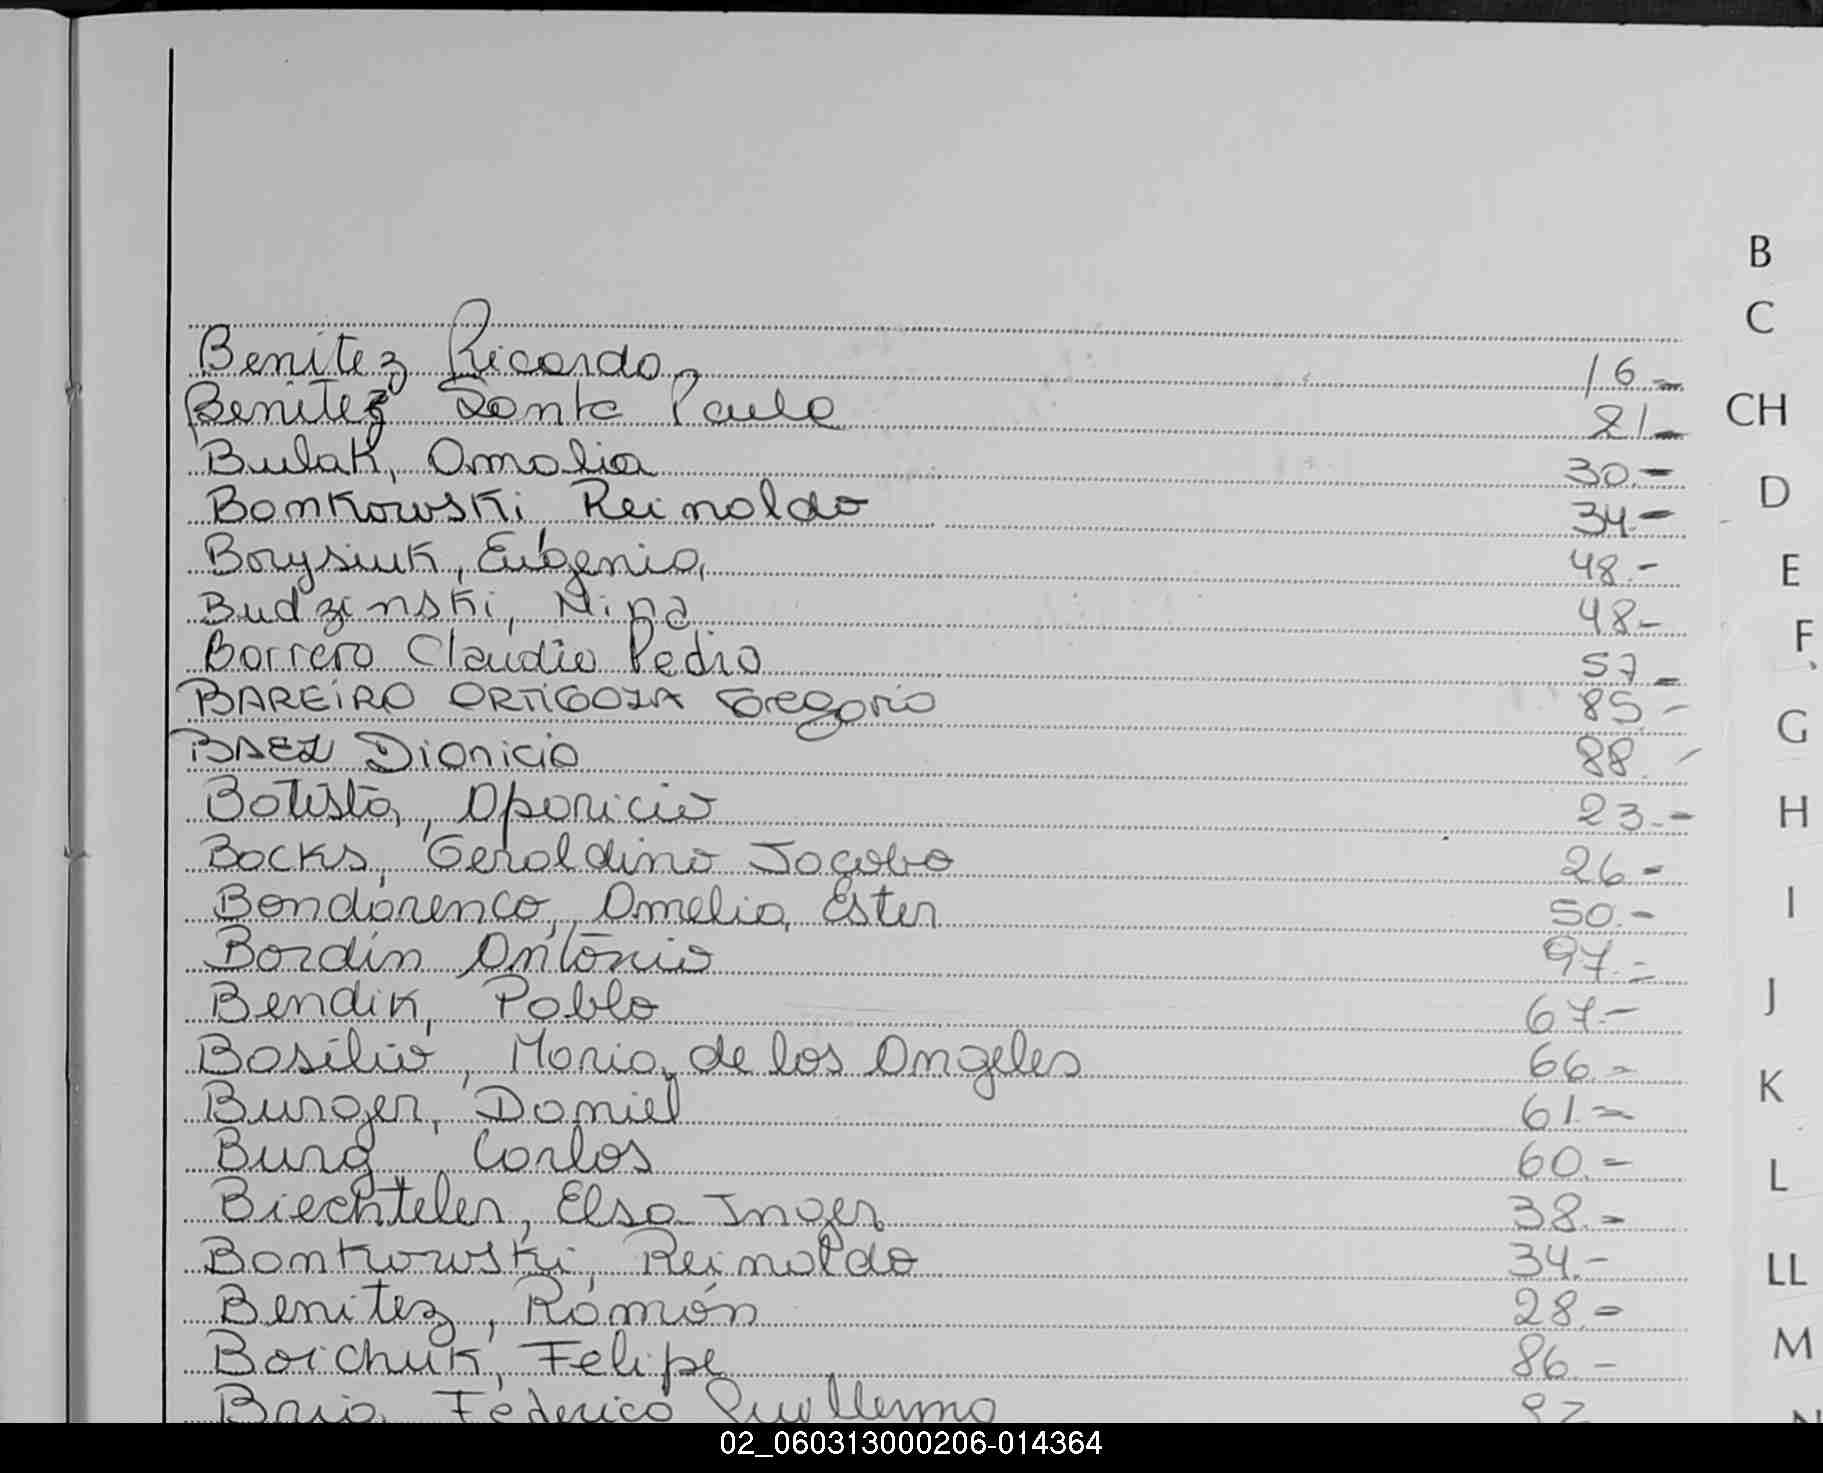 B
C
Benitez Ricardo 16.-
Benitez Santa Paula 21.-
CH
Bulak, Amalia 30.-
Bonkowski Reinaldo 34.-
D
Borysiuk, Eugenia 48.-
E
Budzinski, Nina 48.-
Borrero Claudio Pedro 57.-
F
BAREIRO ORTIGOZA Gregorio 85.-
G
BAEZ Dionicio 88.-
Batista, Aparicio 23.-
H
Bocks, Geraldino Jacobo 26.-
Bondarenco, Amelia Ester 50.-
I
Bordin Antonio 97.-
Bendik, Pablo 67.-
J
Basilio, Maria de los Angeles 66.-
K
Burger, Daniel 61.-
Burg, Carlos 60.-
L
Biechteler, Elsa Inger 38.-
Bonkowski, Reinaldo 34.-
LL
Benitez, Ramón 28.-
M
Boichuk, Felipe 86.-
Federico Guillermo
N
02_060313000206-014364